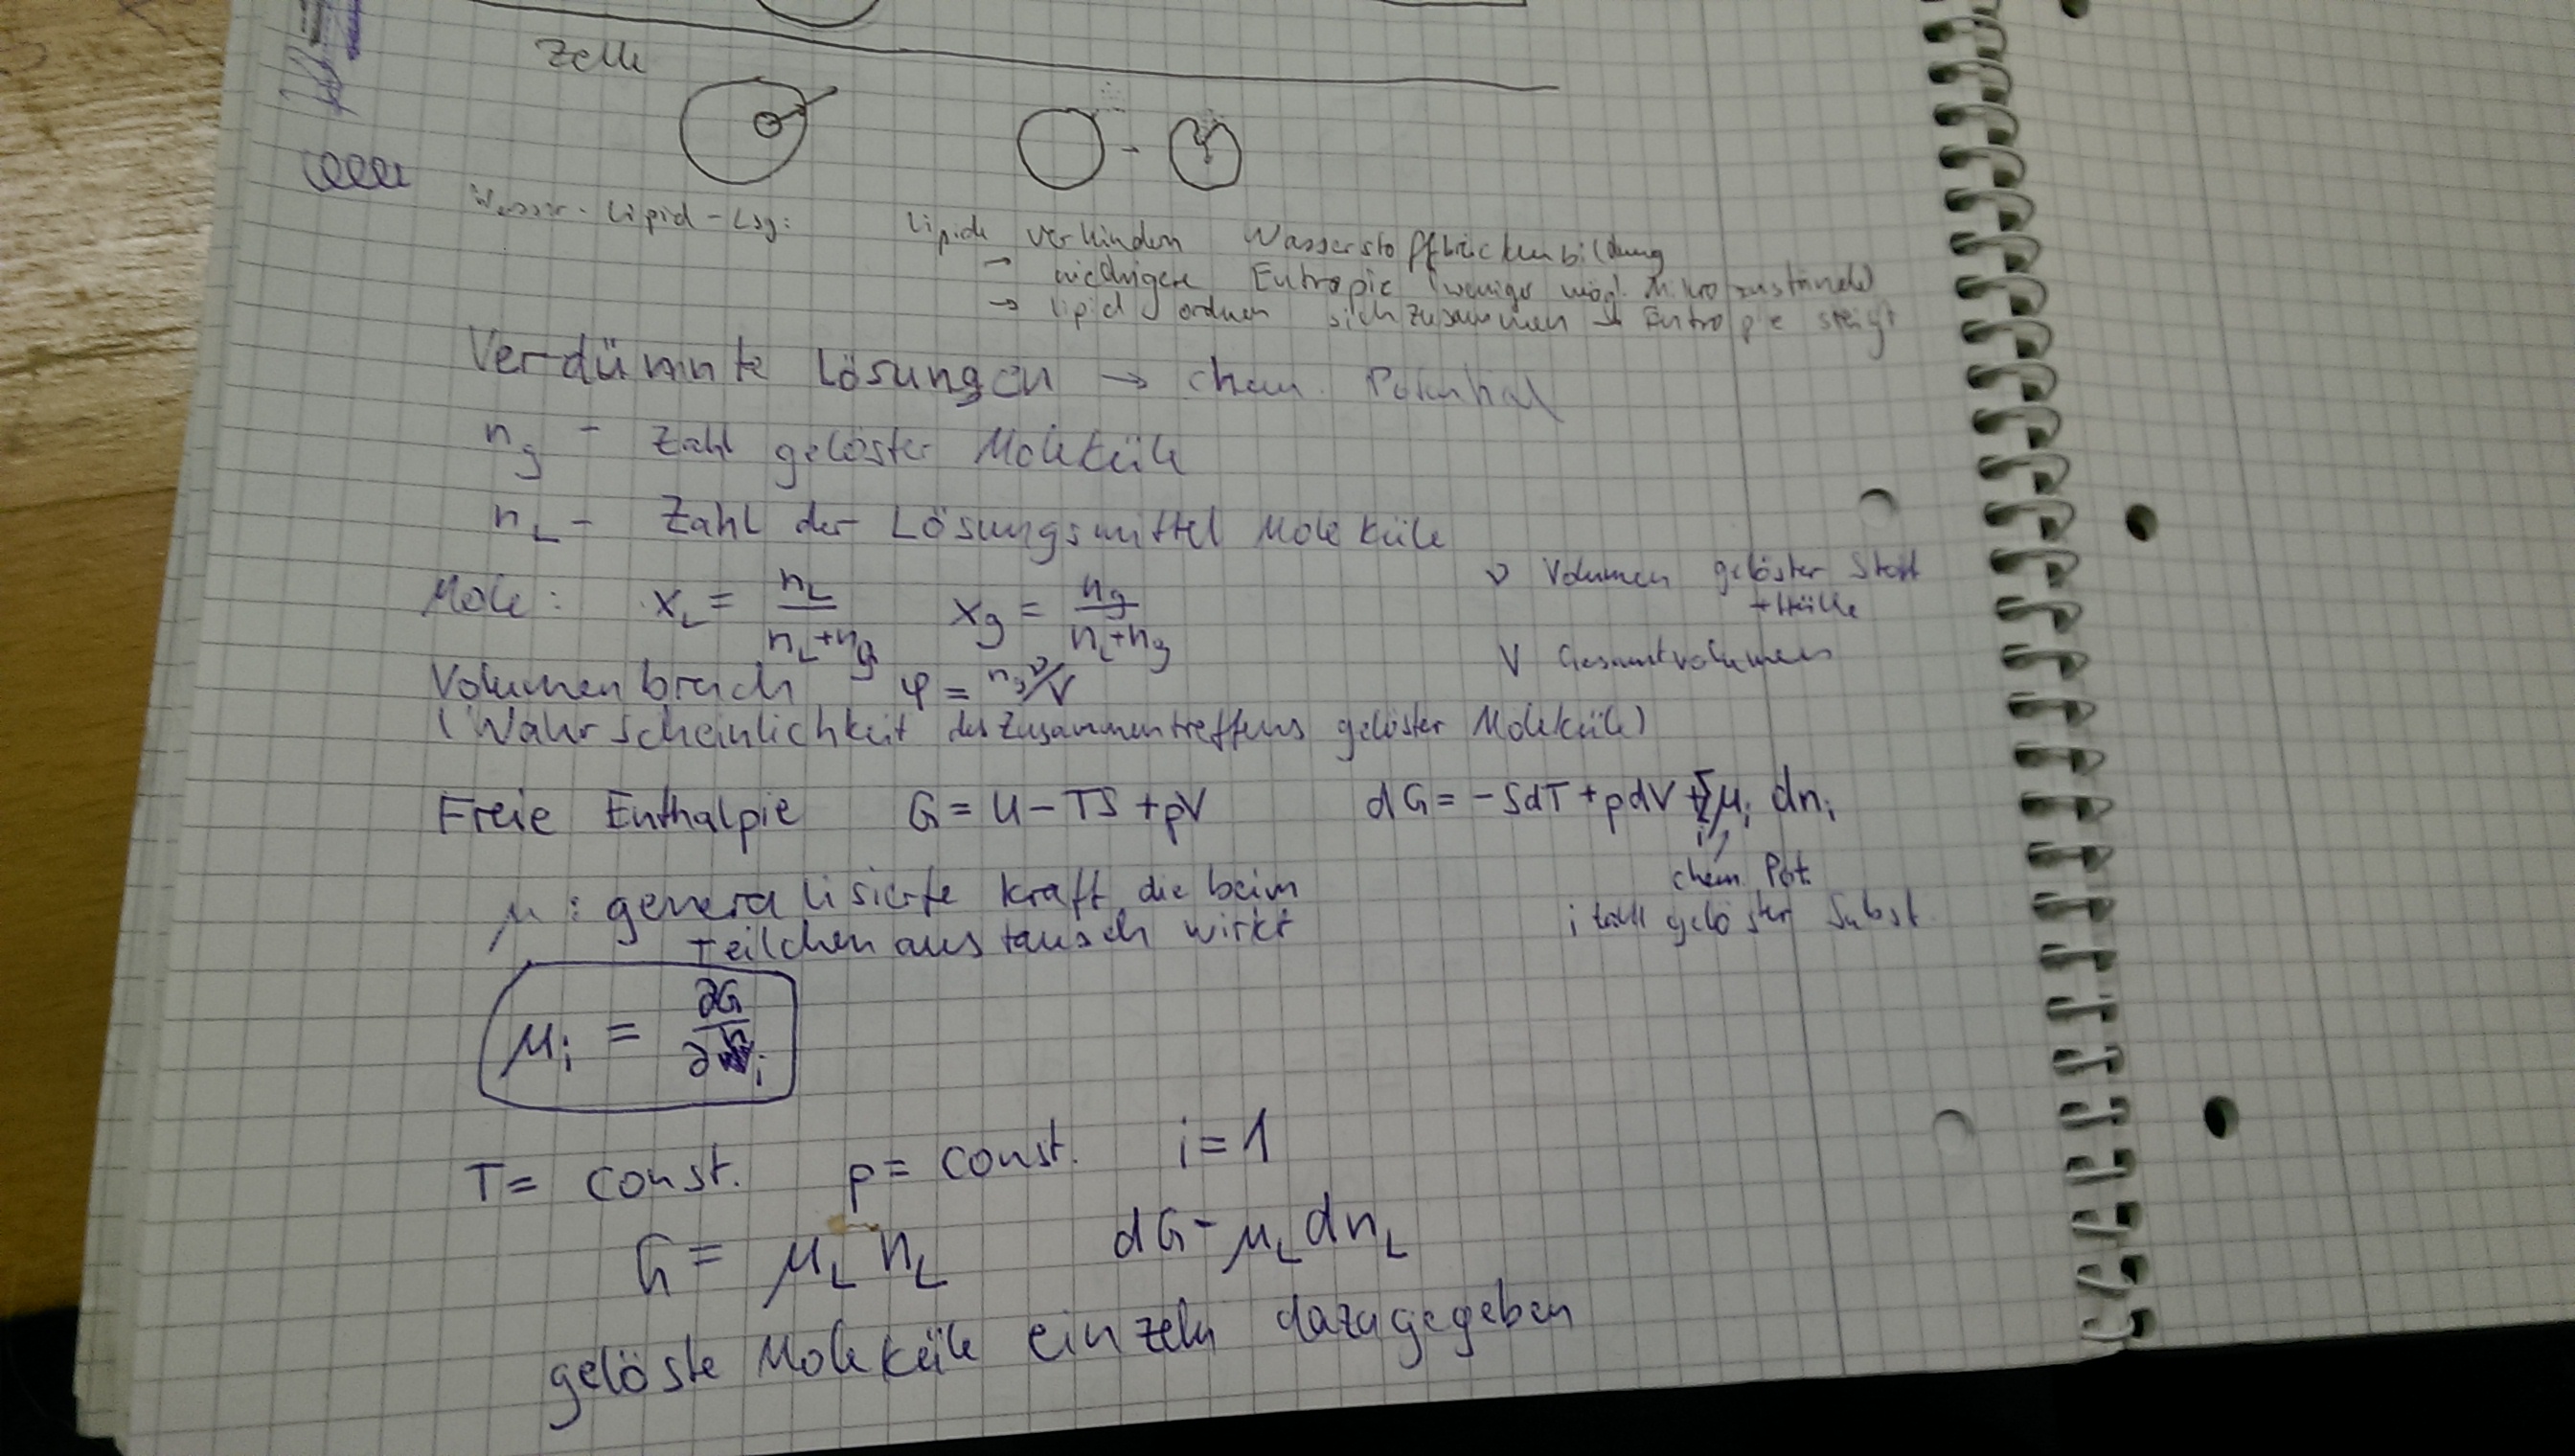 Zelle
Wasser-Lipid-Lsg:
Lipide verhindern Wasserstoffbrückenbildung
→ niedrigere Entropie (weniger mögl. Mikrozustände)
→ lipid ordnen sich zusammen → Entropie steigt
Verdünnte Lösungen → chem. Potential
n_g - Zahl gelöster Moleküle
n_L - Zahl der Lösungsmittel Moleküle
Mole: x_L = n_L/(n_L+n_g) x_g = n_g/(n_L+n_g)
ν Volumen gelöster Stoff
+ Hülle
V Gesamtvolumen
Volumenbruch φ = n_g ν/V
(Wahrscheinlichkeit des Zusammentreffens gelöster Moleküle)
Freie Enthalpie G = U - TS + pV dG = -SdT + pdV + Σ_i μ_i dn_i
chem. Pot.
i gelöster Subst.
μ : generalisierte Kraft, die beim
Teilchenaustausch wirkt
μ_i = ∂G/∂n_i
T = const. p = const. i = 1
G = μ_L n_L dG = μ_L dn_L
gelöste Moleküle einzeln dazugegeben